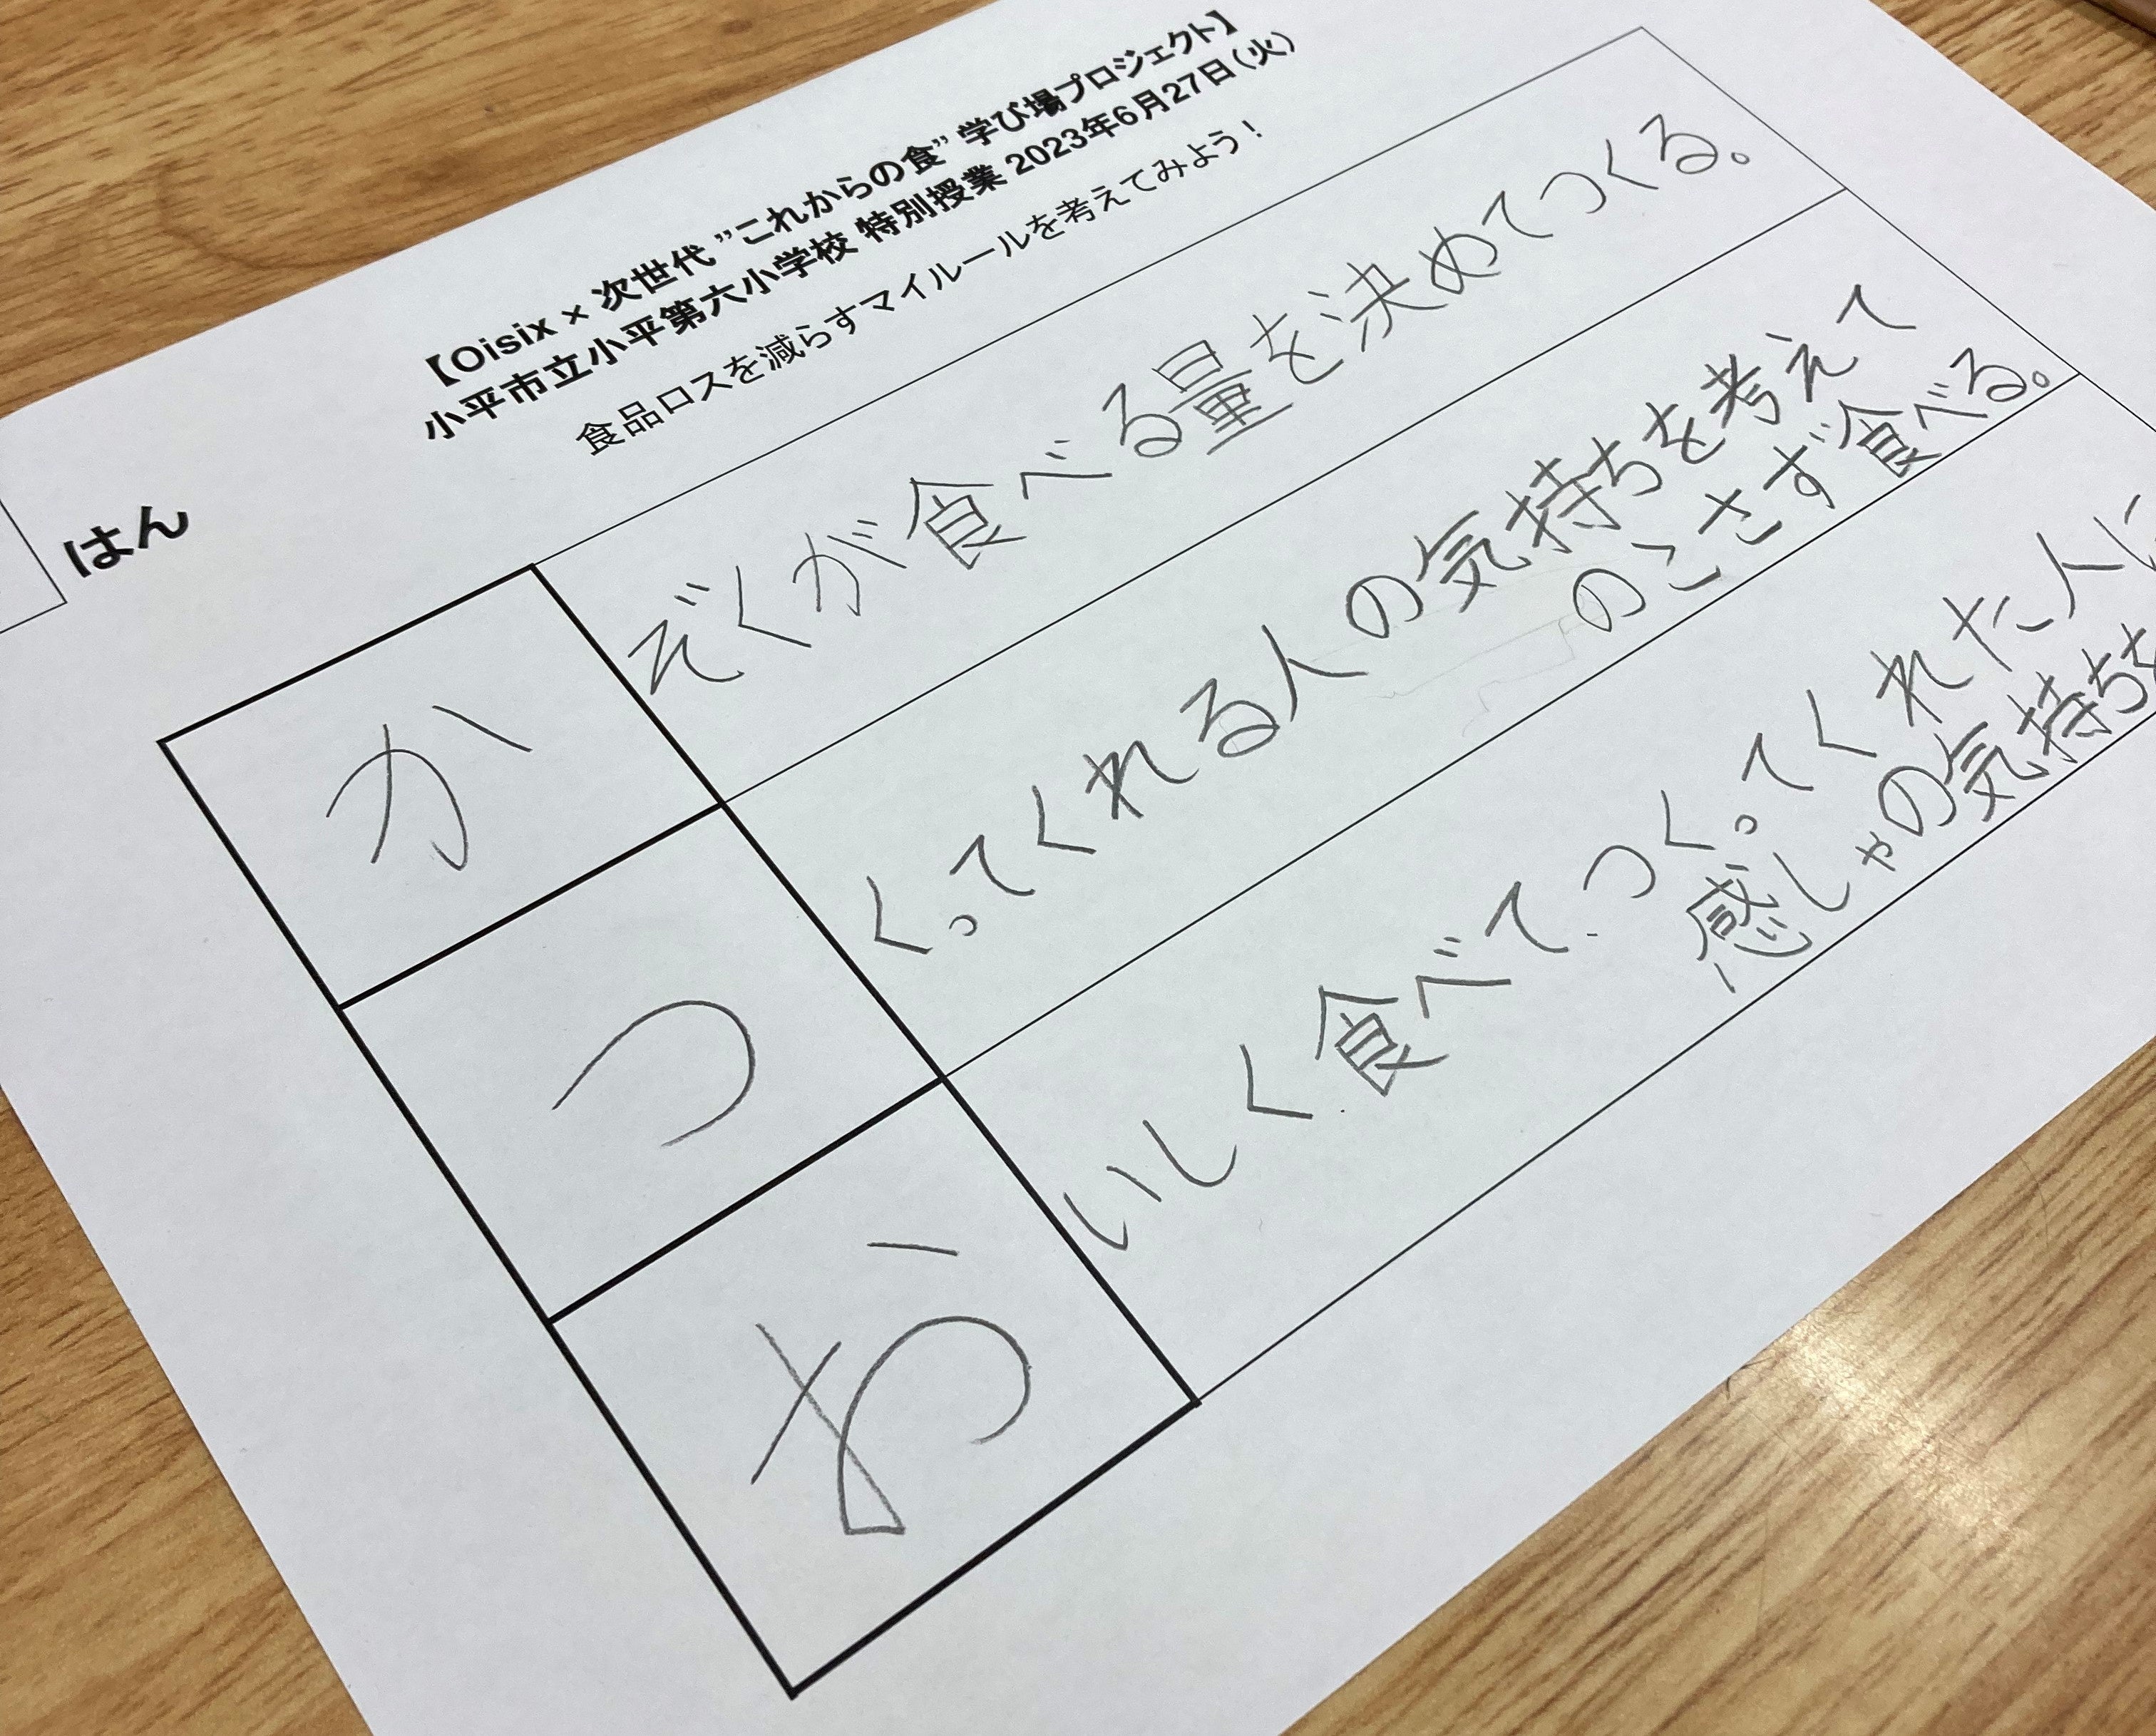 【Oisix × 次世代 ”これからの食” 学び場プロジェクト】
小平市立小平第六小学校 特別授業 2023年6月27日（火）
食品ロスを減らすマイルールを考えてみよう！
はん
か
ぞくが食べる量を決めてつくる。
つ
くってくれる人の気持ちを考えて
のこさず食べる。
お
いしく食べて、つくってくれた人に
感しゃの気持ちを